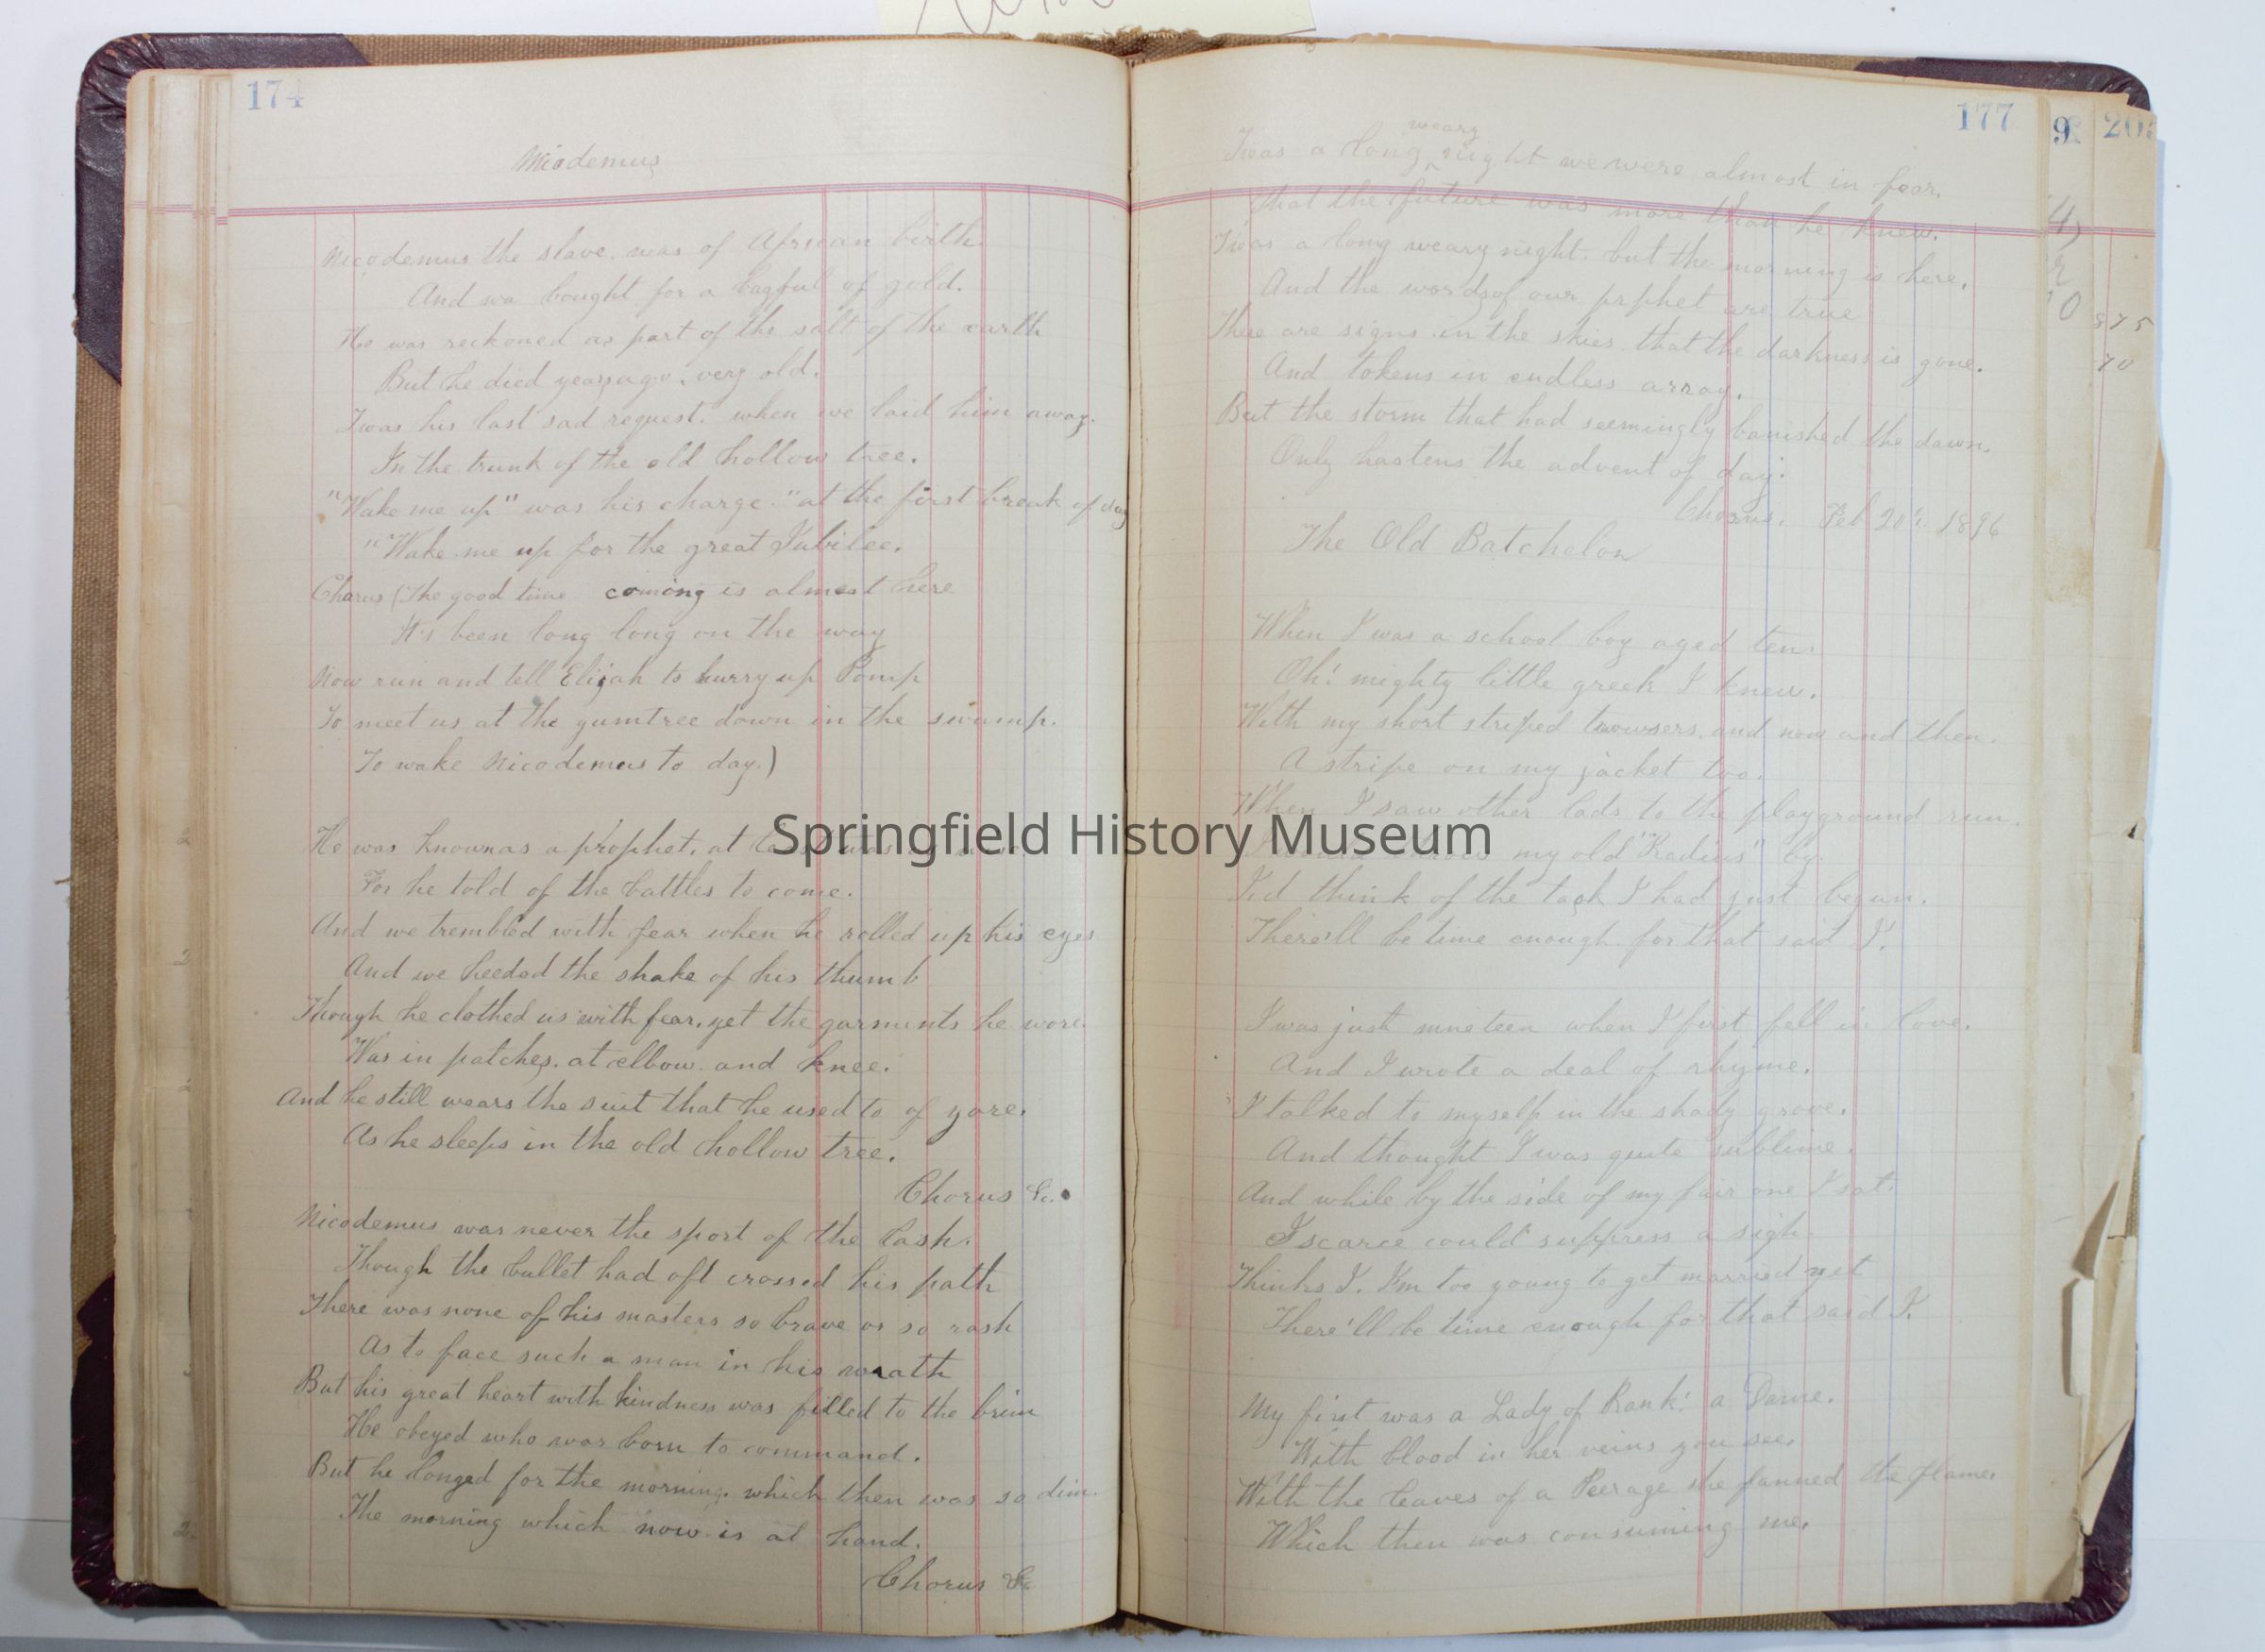 174
Nicodemus
Nicodemus the slave. was of African birth.
And wa bought for a bagful of gold.
He was reckoned as part of the salt of the earth
But he died years ago, very old.
Twas his last sad request. when we laid him away.
In the trunk of the old hollow tree.
"Wake me up" was his charge. "at the first break of day
"Wake me up for the great Jubilee.
Chorus (The good time coming is almost here
It's been long long on the way
Now run and tell Elijah to hurry up Pomp
To meet us at the gumtree down in the swamp.
To wake Nicodemus to day.)
He was known as a prophet, at
For he told of the battles to come.
And we trembled with fear when he rolled up his eyes
And we heeded the shake of his thumb
Though he clothed us with fear, yet the garments he wore.
Was in patches. at elbow. and knee.
And he still wears the suit that he used to of yore.
As he sleeps in the old hollow tree.
Chorus &c.
Nicodemus was never the sport of the lash.
Though the bullet had oft crossed his path
There was none of his masters so brave or so rash
As to face such a man in his wrath
But his great heart with kindness was filled to the brim
He obeyed who was born to command.
But he longed for the morning. which then was so dim.
The morning which now is at hand.
Chorus &c
177
Twas a long weary night we were almost in fear,
That the future was more than he knew.
Twas a long weary night. but the morning is here,
And the words of our prphet are true
There are signs in the skies that the darkness is gone.
And tokens in endless array.
But the storm that had seemingly banished the dawn.
Only hastens the advent of day.
Chorus. Feb 20th 1896
The Old Batchelor
When I was a school boy aged ten.
Oh! mighty little greek I knew.
With my short striped trowsers, and now and then.
A stripe on my jacket too.
When I saw other lads to the playground run.
my old "Radius" by.
I'd think of the task I had just begun.
There'll be time enough for that said I.
I was just nineteen when I first fell in love.
And I wrote a deal of rhyme.
I talked to myself in the shady grove.
And thought I was quite sublime.
And while by the side of my fair one I sat.
I scarce could suppress a sigh.
Thinks I. I'm too young to get married yet
There'll be time enough for that said I.
My first was a Lady of Rank! a Dame.
With blood in her veins you see.
With the leaves of a Peerage she fanned the flame.
Which then was consuming me.
9
20
875
70
Springfield History Museum